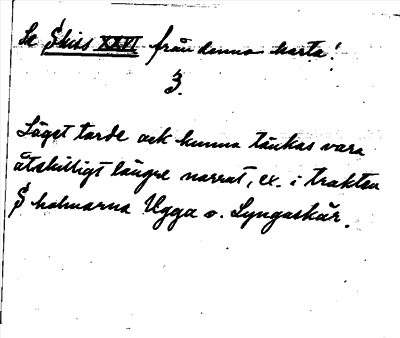 Se Skiss XXVI från denna karta!
3.
Läget torde ock kunna tänkas vara
åtskilligt längre norrut, ex. i trakten
S holmarna Ugga o. Lyngaskär.